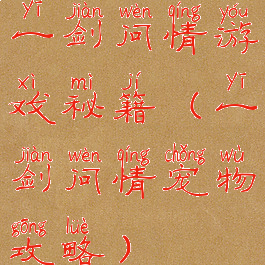 yī jiàn wèn qíng yóu
一剑问情游
xì mì jí yī
戏秘籍（一
jiàn wèn qíng chǒng wù
剑问情宠物
gōng lüè
攻略）